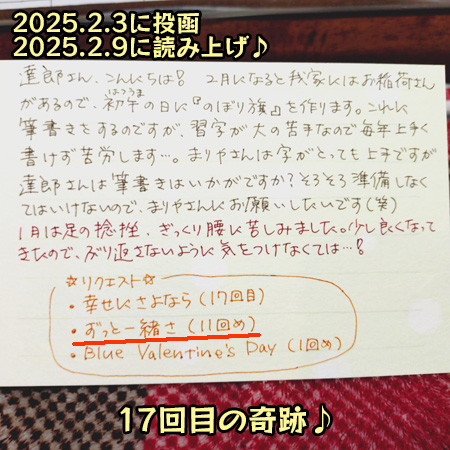 2025.2.3に投函
2025.2.9に読み上げ♪
達郎さん、こんにちは! 2月になると我家にはお稲荷さん
があるので、初午の日に『のぼり旗』を作ります。これに
はつうま
筆書きをするのですが、習字が大の苦手なので毎年上手く
書けず苦労します…。まりやさんは字がとっても上手ですが
達郎さんは筆書きはいかがですか?そろそろ準備しなく
てはいけないので、まりやさんにお願いしたいです(笑)
1月は足の捻挫、ぎっくり腰に苦しみました。少し良くなって
きたので、ぶり返さないように気をつけなくては…!
☆リクエスト☆
・幸せにさよなら(17回目)
・ずっと一緒さ(11回め)
・Blue Valentine's Day(1回め)
17回目の奇跡♪